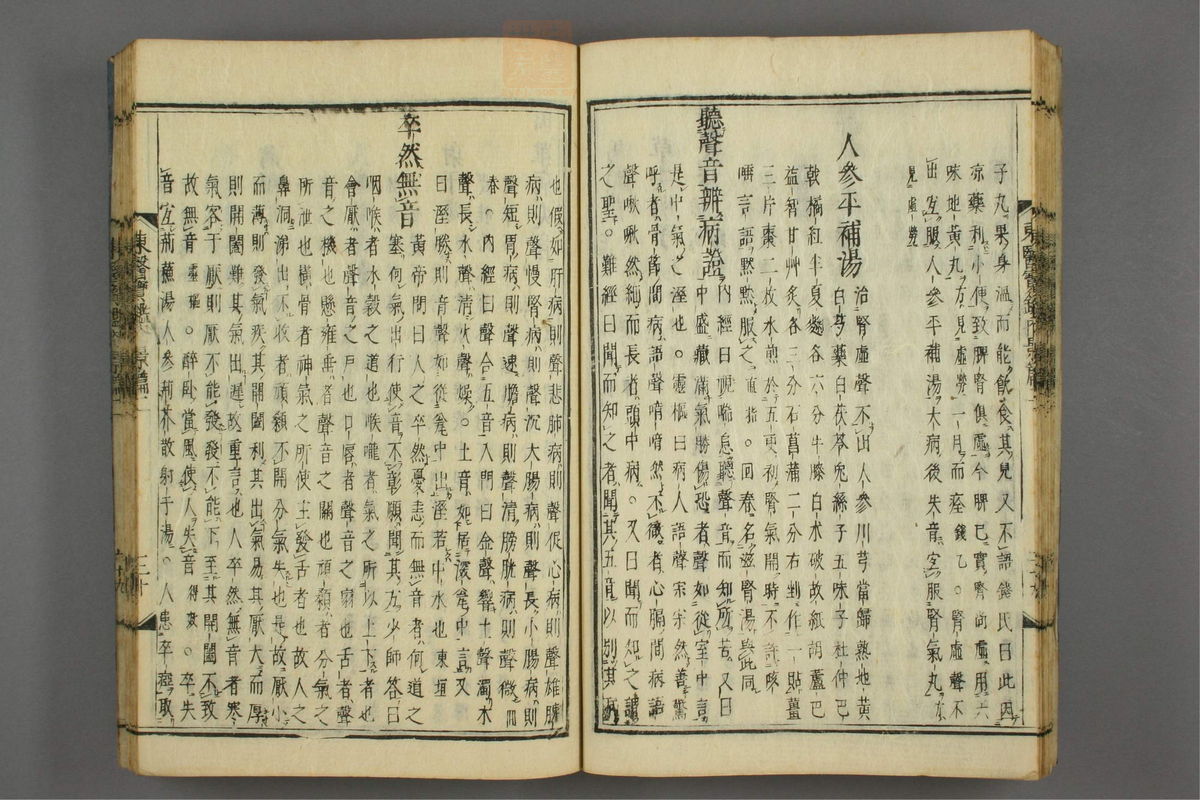 子丸果身溫而能飮食其兒又不語錢氏曰此因
凉藥利小便致脾腎俱虛今脾已實腎尙虛用六
味地黄丸方見虛勞一月而痊錢乙。腎虛聲不
出宜服人參平補湯大病後失音宜服腎氣丸方
見虛勞
人參平補湯
治腎虛聲不出人參川芎當歸熟地黄
白芍藥白茯苓兎絲子五味子杜仲巴
戟橘紅半夏麴各六分牛膝白朮破故紙胡蘆巴
益智甘艸炙各三分石菖蒲二分右剉作一貼薑
三片棗二枚水煎於五更初腎氣開時不許咳
唾言語默默服之直指。回春名滋腎湯與此同
聽聲音辨病證
內經曰視喘息聽聲音而知所苦又曰
中盛藏滿氣勝傷恐者聲如從室中言
是中氣之溼也。靈樞曰病人語聲宋宋然善驚
呼者骨莭間病語聲喑喑然不徹者心膈間病語
聲啾啾然細而長者頭中病。又曰聞而知之謂
之聖。難經曰聞而知之者聞其五音以別其病
也假如肝病則聲悲肺病則聲促心病則聲雄脾
病則聲慢腎病則聲沉大腸病則聲長小腸病則
聲短胃病則聲速膽病則聲清膀胱病則聲微回
春。內經曰聲合五音入門曰金聲響土聲濁木
聲長水聲清火聲燥。土音如居深甕中言又
曰溼喉則音聲如從甕中出溼若中水也東垣
卒然無音
黃帝問曰人之卒然憂恚而無音者何道之
塞何氣出行使音不彰願聞其方少師答曰
咽喉者水穀之道也喉嚨者氣之所以上下者也
會厭者聲音之戶也口唇者聲音之扇也舌者聲
音之機也懸雍垂者聲音之關也頏顙者分氣之
所泄也橫骨者神氣之所使主發舌者也故人之
鼻洞涕出不收者頏顙不開分氣失也是故厭小
而薄則發氣疾其開闔利其出氣易其厭大而厚
則開闔難其氣出遲故重言也人卒然無音者寒
氣客于厭則厭不能發發不能下至其開闔不致
故無音靈樞。醉臥當風使人失音得効。卒失
音宜荊蘓湯人參荊芥散射干湯。人患卒瘂取